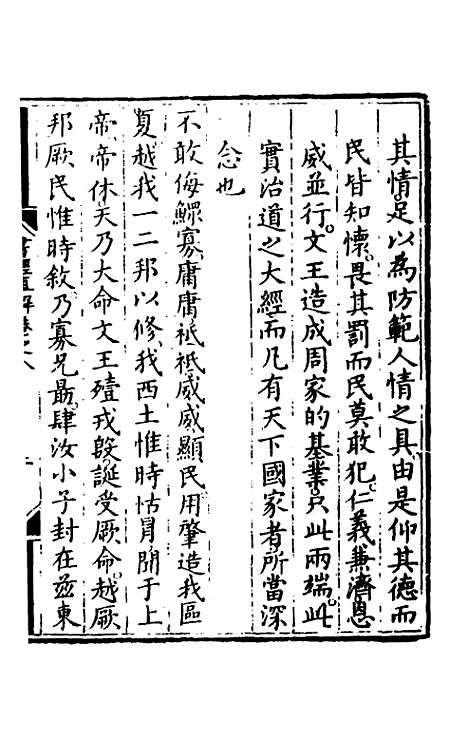 其情足以為防範人情之具由是仰其德而
民皆知懷畏其罰而民莫敢犯仁義兼濟恩
威並行文王造成周家的基業只此兩端此
實治道之大經而凡有天下國家者所當深
念也
不敢侮鰥寡庸庸祗祗威威顯民用肇造我區
夏越我一二邦以修我西土惟時怙冒聞于上
帝帝休天乃大命文王殪戎殷誕受厥命越厥
邦厥民惟時敘乃寡兄勗肆汝小子封在茲東
書經直解卷之八